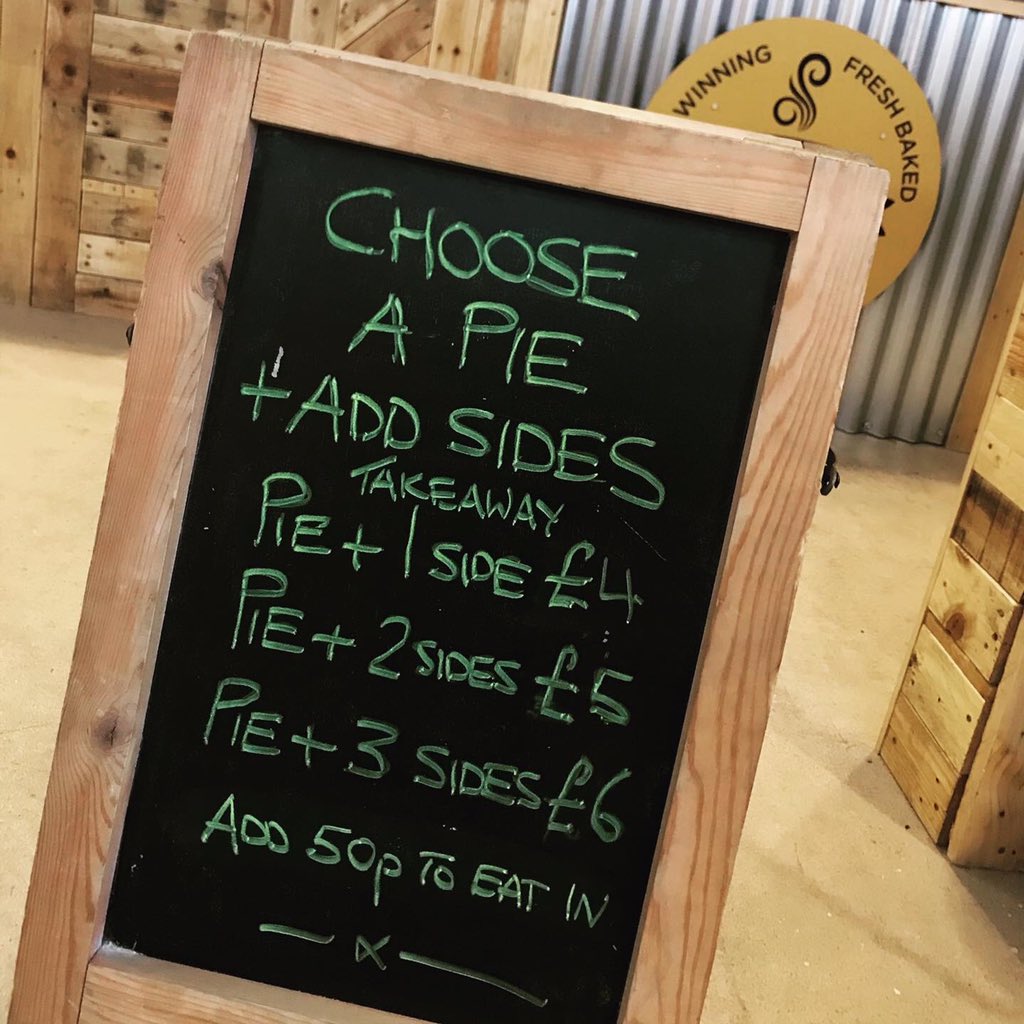 WINNING
FRESH BAKED
CHOOSE
A PIE
+ ADD SIDES
TAKEAWAY
PIE + 1 SIDE £4
PIE + 2 SIDES £5
PIE + 3 SIDES £6
ADD 50p TO EAT IN